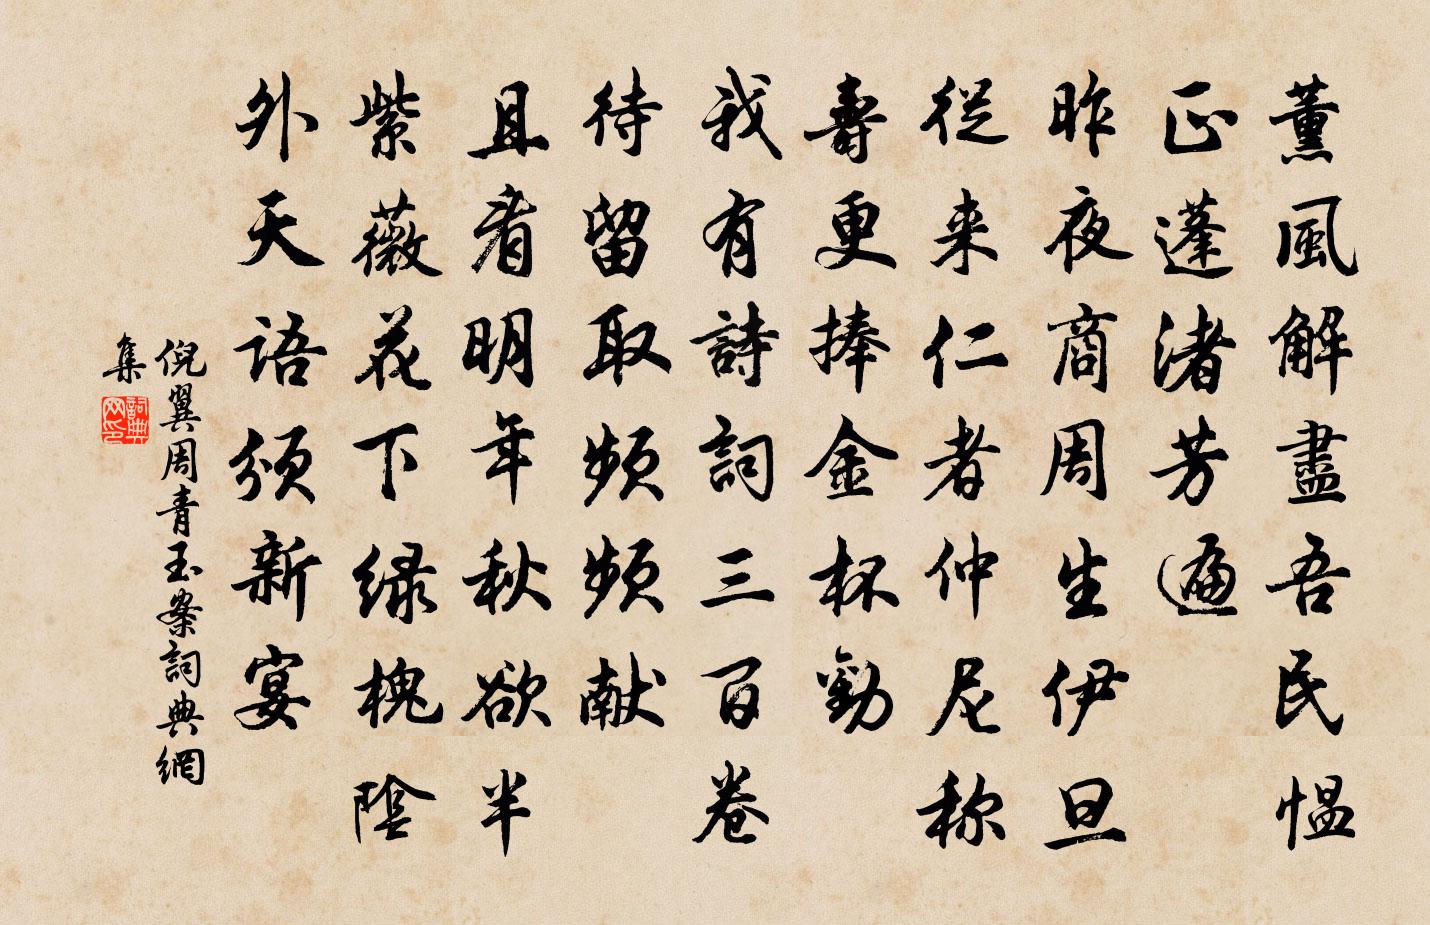 薰風解盡吾民愠
正蓬渚芳遍
昨夜商周生伊旦
從来仁者仲尼称
壽更捧金杯勸
我有詩詞三百卷
待留取頻頻献
且看明年秋欲半
紫薇花下绿槐陰
外天语頒新宴
倪翼周青玉案詞典網
集
詞典网印